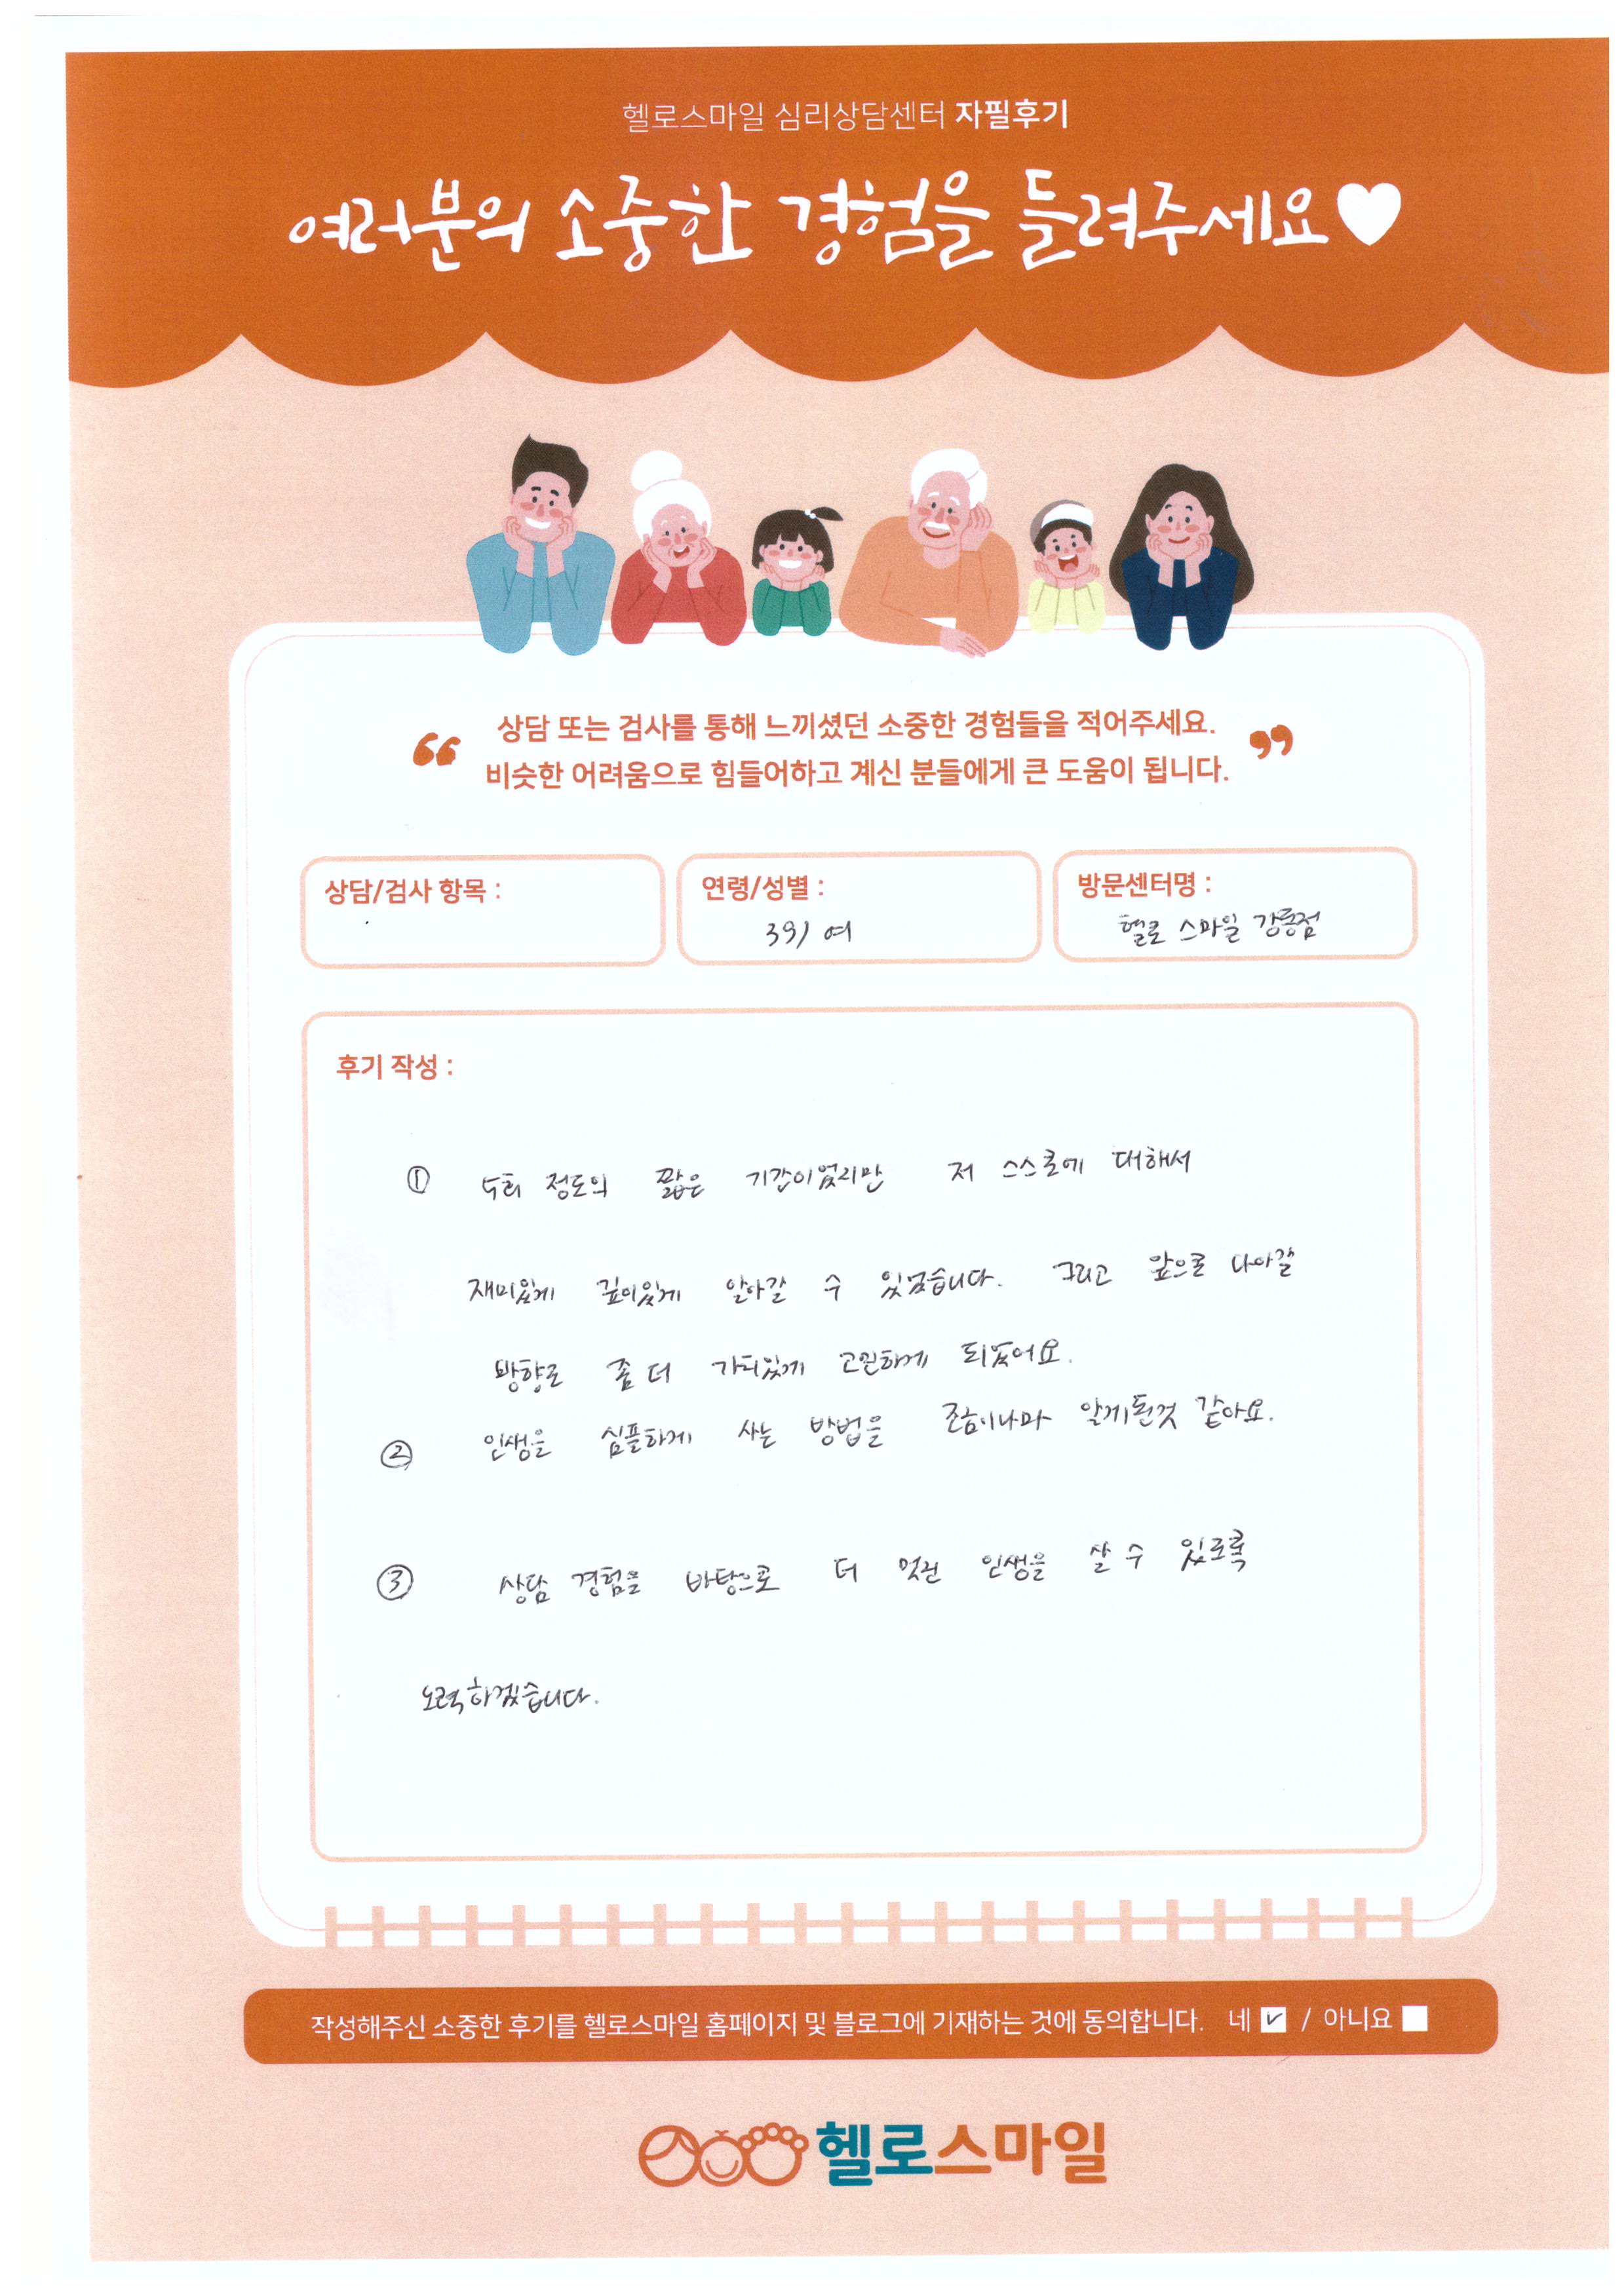 헬로스마일 심리상담센터 자필후기
여러분의 소중한 경험을 들려주세요♥
“ 상담 또는 검사를 통해 느끼셨던 소중한 경험들을 적어주세요. ”
비슷한 어려움으로 힘들어하고 계신 분들에게 큰 도움이 됩니다.
상담/검사 항목 :
연령/성별 :
39/ 여
방문센터명 :
헬로 스마일 강릉점
후기 작성 :
① 5회 정도의 짧은 기간이었지만 저 스스로에 대해서
재미있게 깊이있게 알아갈 수 있었습니다. 그리고 앞으로 나아갈
방향로 좀 더 가치있게 고민하게 되었어요.
② 인생을 심플하게 사는 방법을 조금이나마 알게된것 같아요.
③ 상담 경험을 바탕으로 더 멋진 인생을 살 수 있도록
노력하겠습니다.
작성해주신 소중한 후기를 헬로스마일 홈페이지 및 블로그에 기재하는 것에 동의합니다. 네 ✓ / 아니요
헬로스마일